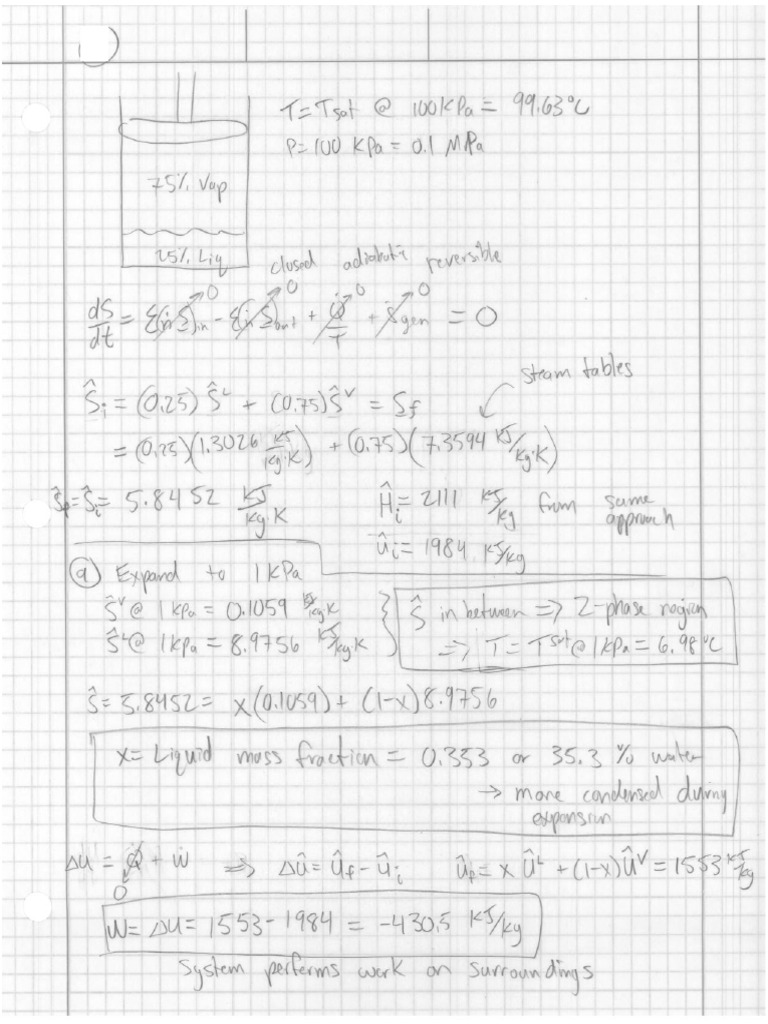 T = Tsat @ 100kPa = 99.63°C
P = 100 KPa = 0.1 MPa
75% Vap
25% Liq
closed adiabatic reversible
dS/dt = Σ(ṁŜ)in - Σ(ṁŜ)out + Q̇/T + Ṡgen = 0
0 0 0 0
steam tables
Ŝi = (0.25) Ŝᴸ + (0.75) Ŝⱽ = Sf
= (0.25)(1.3026 kJ/kg·K) + (0.75)(7.3594 kJ/kg·K)
Ŝf = Ŝi = 5.8452 kJ/kg·K
Ĥi = 2111 kJ/kg from same approach
Ûi = 1984 kJ/kg
(a) Expand to 1 kPa
Ŝⱽ @ 1 kPa = 0.1059 kJ/kg·K
Ŝᴸ @ 1 kPa = 8.9756 kJ/kg·K
Ŝ in between => 2-phase region
=> T = Tsat @ 1 kPa = 6.98°C
Ŝ = 5.8452 = x(0.1059) + (1-x)8.9756
x = Liquid mass fraction = 0.353 or 35.3 % water
→ more condensed during
expansion
ΔU = Q + W => ΔÛ = Ûf - Ûi Ûf = x Ûᴸ + (1-x)Ûⱽ = 1553 kJ/kg
0
W = ΔU = 1553 - 1984 = -430.5 kJ/kg
System performs work on surroundings